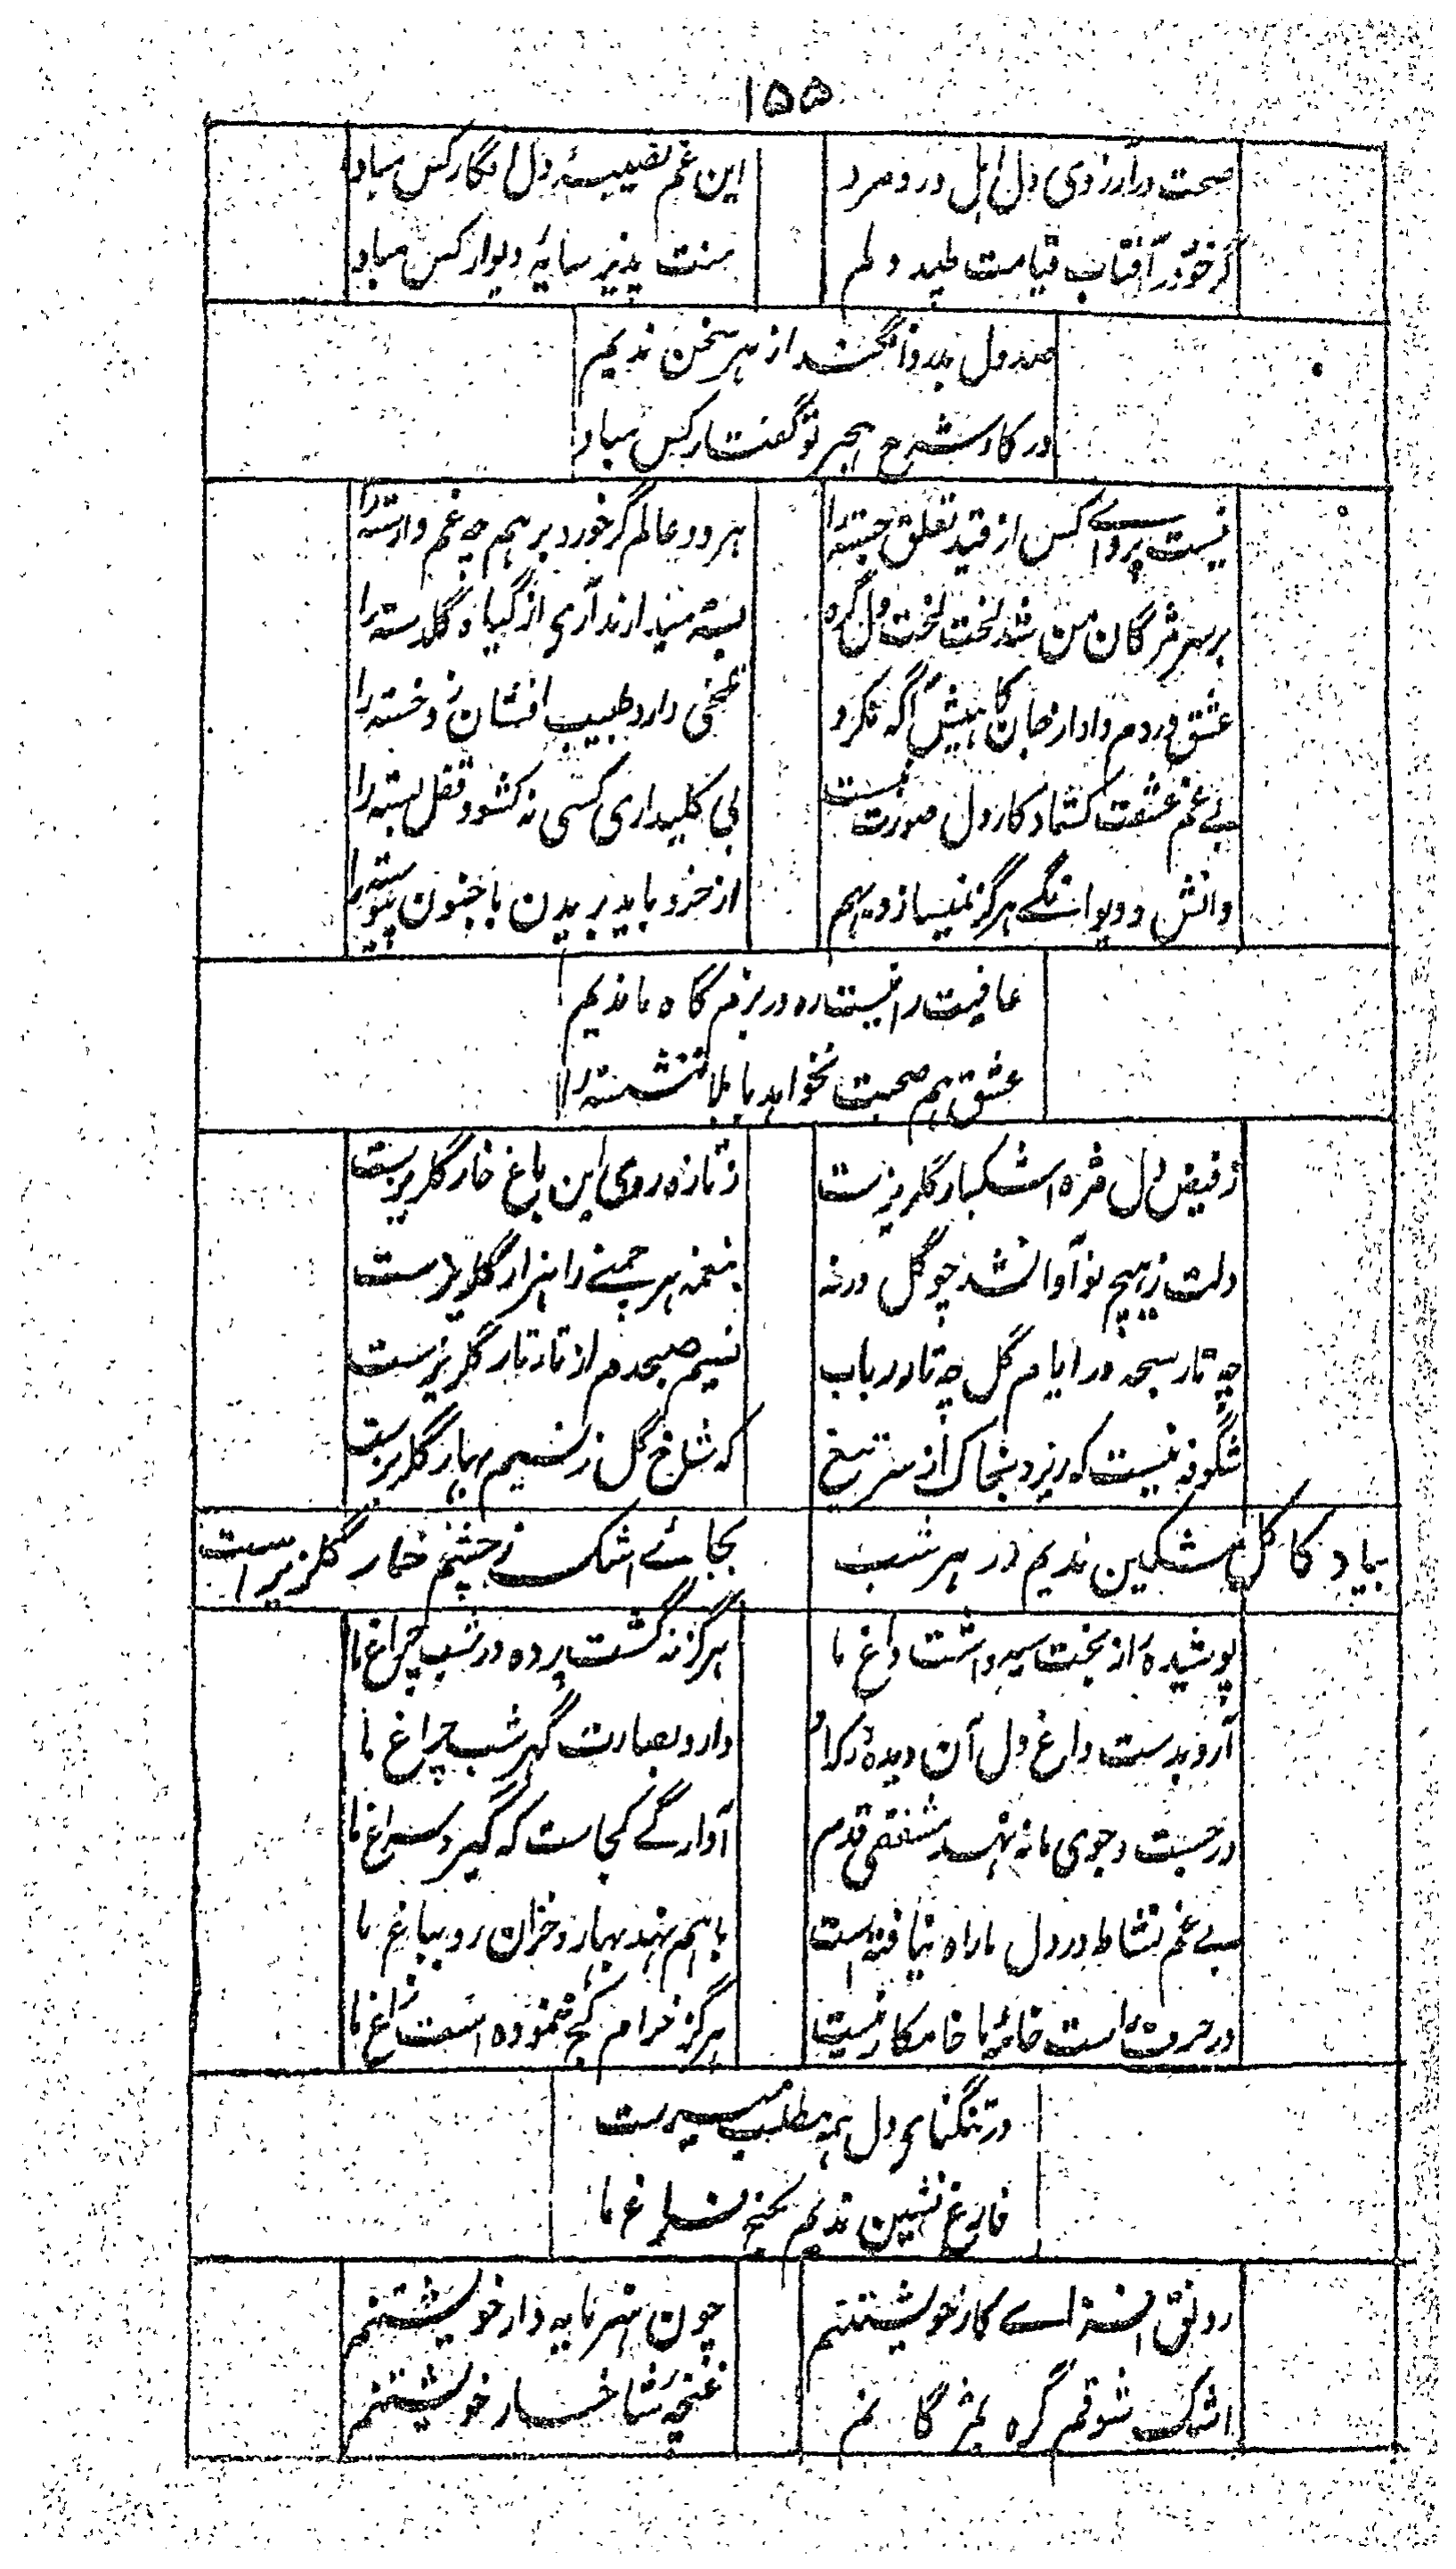 ۱۵۵
صحت در آرزوی دل اہل درد مرد
این غم نصیبۂ دل افگار کس مباد
گر خود در آفتاب قیامت طپید دلم
منت پذیر سایۂ دیوار کس مباد
صد دل بدو انگشت از ہر سخن ندیم
در کار شرح ہجر تو گفتار کس مباد
نیست پروای کس از قید تعلق جستہ را
ہر دو عالم گر خورد برہم چہ غم وارستہ را
بر سر مژگان من شد لخت لخت دل گرہ
بستہ میدارند آری از گیاہ گلدستہ را
عشق دردم داد از جان کاہیش آگہ نکرد
طبیب افشان زود خستہ را
بے غم عشقت کشاد کار دل صورت نبست
بی کلیداری کسی نہ کشود قفل بستہ را
دانش و دیوانگے ہرگز نمیسازد بہم
از خرد باید بریدن با جنون پیوستہ را
عافیت را نیست رہ در بزم گاہ ما ندیم
عشق ہم صحبت نخواہد با بلا ننشستہ را
ز فیض دل مژہ اشکبار گلریزست
ز تازہ روی این باغ خار گلریزست
دلت ز ہیچ نوا وا نشد چو گل ورنہ
بنغمہ ہر چمنے را ہزار گلریزست
چہ تار سبحہ در ایام گل چہ تار رباب
نسیم صبحدم از تار تار گلریزست
شگوفہ نیست کہ ریزد بخاک از سر تیغ
کہ شاخ گل ز نسیم بہار گلریزست
بیاد کاکل مشکین ندیم در ہر شب
بجائے اشک ز چشم خمار گلریز است
پوشیدۂ از بخت سیہ داشت داغ ما
ہرگز نہ گشت پردہ در شب چراغ ما
آرد بدست داغ دل آن دیدۂ کدام
دارد بصارت گہر شب چراغ ما
در جست و جوی ما نہ نہد مشفقی قدم
آوارگے کجاست کہ گیرد سراغ ما
بے غم نشاط در دل ما راہ نیافتہ است
باہم نہند بہار و خزان رو بباغ ما
در حرف راست خامۂ ما خامکار نیست
ہرگز خرام کج ننمودہ است زاغ ما
در تنگنای دل ہمہ مطلب میسرست
فارغ نشین ندیم بکنج فراغ ما
رونق افزاے کار خویشتنم
چون ہنر مایہ دار خویشتنم
اشک شوقم گرہ بمژگانم
غنچۂ شاخسار خویشتنم